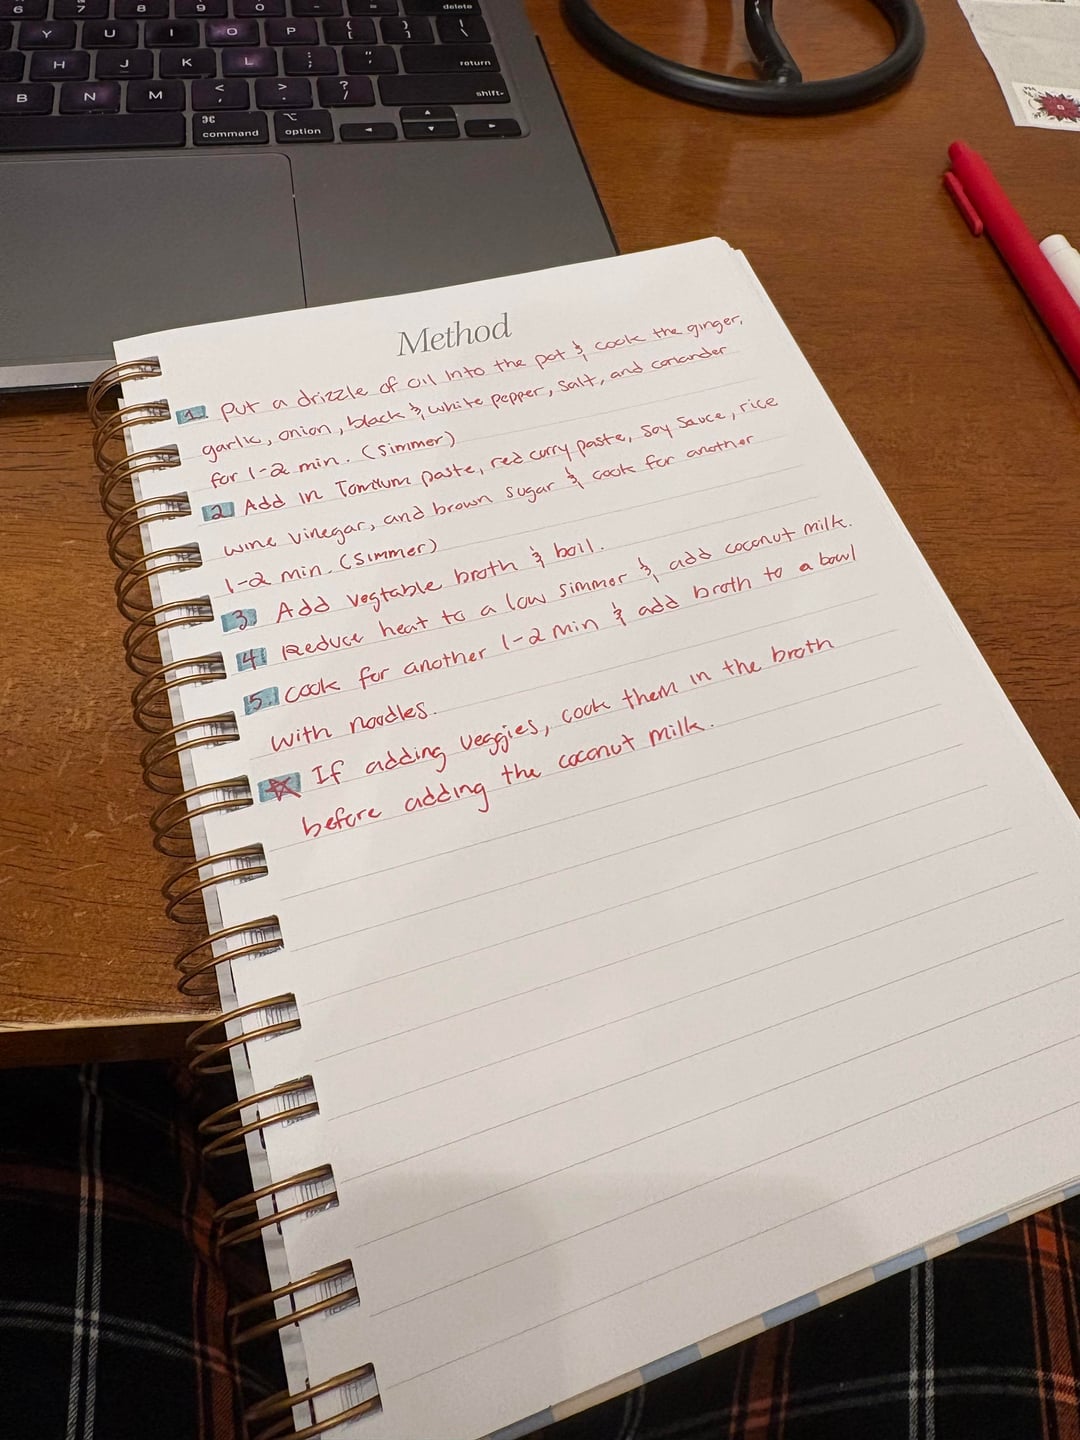 6 7 8 9 0 delete
Y U I O P { [ } ] | \
H J K L : ; " ' return
B N M < , > . ? / shift
⌘ command ⌥ option
Method
1. Put a drizzle of oil into the pot & cook the ginger,
garlic, onion, black & white pepper, salt, and coriander
for 1-2 min. (simmer)
2. Add in Tomyum paste, red curry paste, soy sauce, rice
wine vinegar, and brown sugar & cook for another
1-2 min. (simmer)
3. Add vegtable broth & boil.
4. Reduce heat to a low simmer & add coconut milk.
5. Cook for another 1-2 min & add broth to a bowl
with noodles.
☆ If adding veggies, cook them in the broth
before adding the coconut milk.